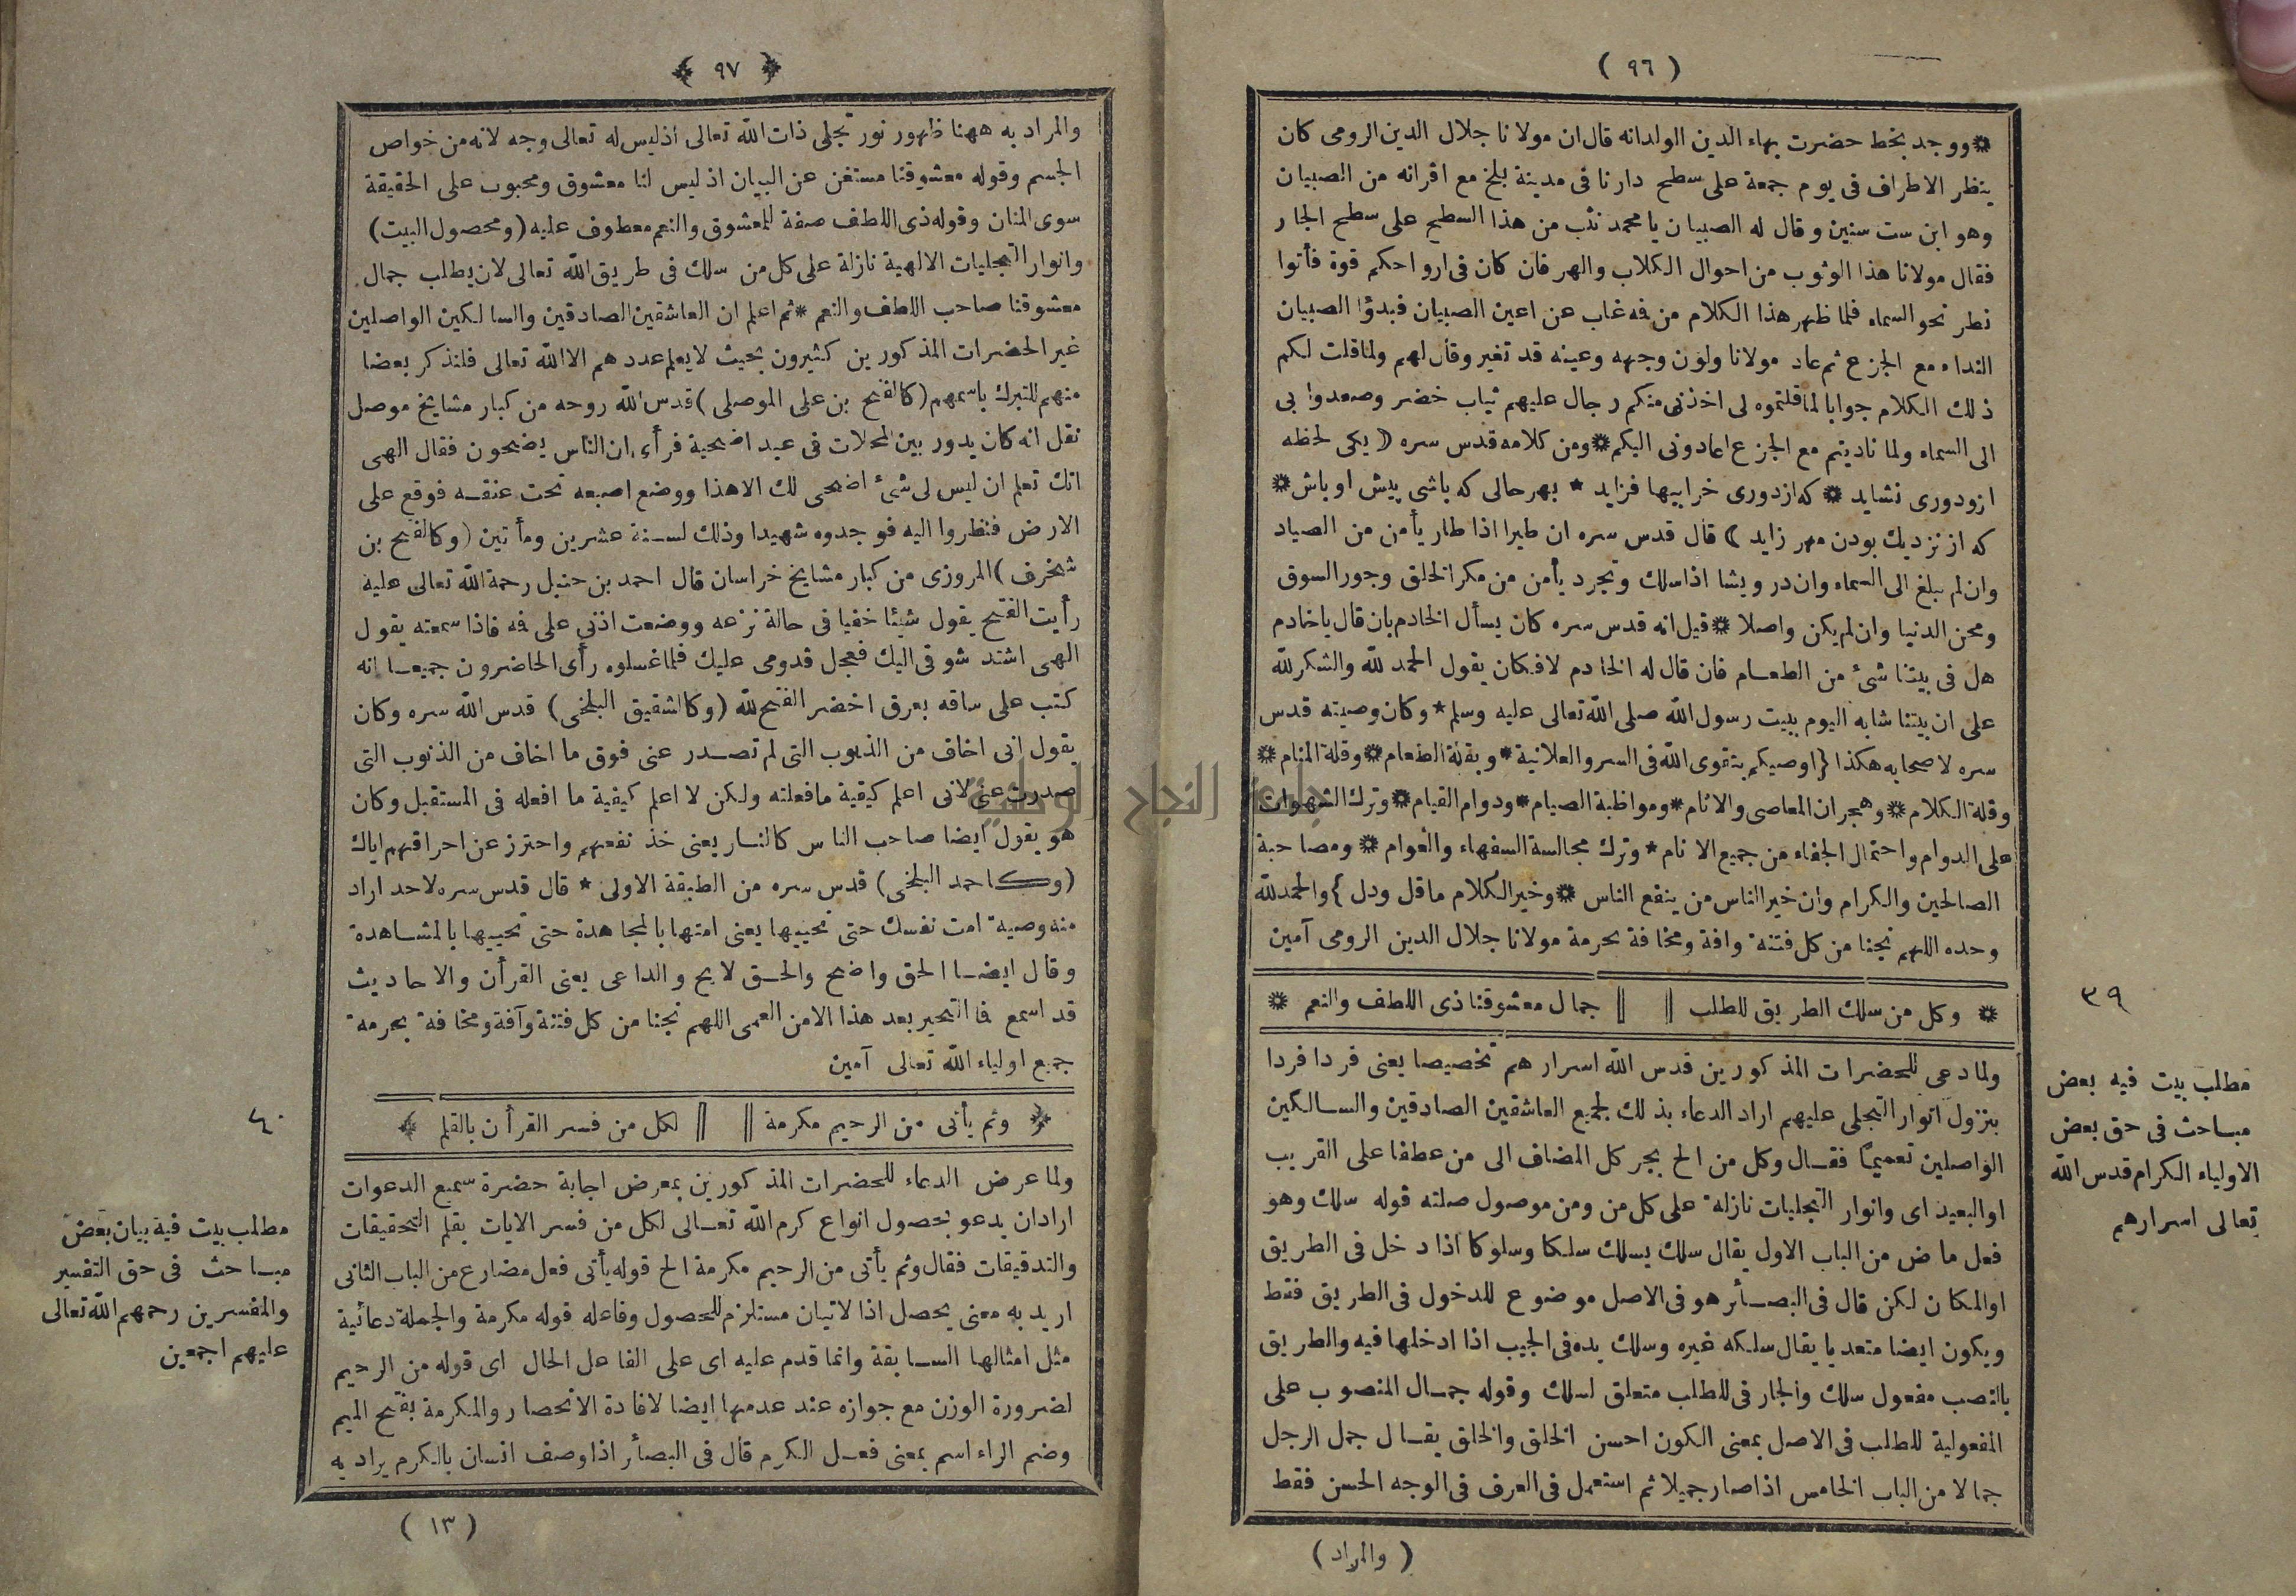 ( ٩٦ )
❊ ووجد بخط حضرت بهاء الدين الولدانه قال ان مولانا جلال الدين الرومى كان
ينظر الاطراف فى يوم جمعة على سطح دارنا فى مدينة بلخ مع اقرانه من الصبيان
وهو ابن ست سنين وقال له الصبيان يا محمد نثب من هذا السطح على سطح الجار
فقال مولانا هذا الوثوب من احوال الكلاب والهر فان كان فى ارواحكم قوة فأتوا
نطر نحو السماء فلما ظهر هذا الكلام من فه غاب عن اعين الصبيان فبدؤا الصبيان
النداء مع الجزع ثم عاد مولانا ولون وجهه وعينه قد تغير وقال لهم ولما قلت لكم
ذلك الكلام جوابا لما قلتموه لى اخذنى منكم رجال عليهم ثياب خضر وصعدوا بى
الى السماء ولما ناديتم مع الجزع اعادونى اليكم ❊ ومن كلامه قدس سره ( يكى لحظه
ازودورى نشايد ❊ كه ازدورى خرابيها فزايد * بهر حالى كه باشى پيش او باش ❊
كه از نزديك بودن مهر زايد ) قال قدس سره ان طيرا اذا طار يأمن من الصياد
وان لم يبلغ الى السماء وان درويشا اذا سلك وتجرد يأمن من مكر الخلق وجور السوق
ومحن الدنيا وان لم يكن واصلا ❊ قيل انه قدس سره كان يسأل الخادم بان قال يا خادم
هل فى بيتنا شئ من الطعام فان قال له الخادم لا فكان يقول الحمد لله والشكر لله
على ان بيتنا شابه اليوم ببيت رسول الله صلى الله تعالى عليه وسلم * وكان وصيته قدس
سره لاصحابه هكذا { اوصيكم بتقوى الله فى السر والعلانية * وبقلة الطعام ❊ وقلة المنام ❊
وقلة الكلام ❊ وهجران المعاصى والاثام * ومواظبة الصيام * ودوام القيام ❊ وترك الشهوات
على الدوام واحتمال الجفاء من جميع الانام * وترك مجالسة السفهاء والعوام ❊ ومصاحبة
الصالحين والكرام وان خير الناس من ينفع الناس ❊ وخير الكلام ما قل ودل } والحمد لله
وحده اللهم نجنا من كل فتنة وافة ومخافة بحرمة مولانا جلال الدين الرومى آمين
❊ وكل من سلك الطريق للطلب || || جمال معشوقنا ذى اللطف والنعم ❊
ولما دعى للحضرات المذكورين قدس الله اسرارهم تخصيصا يعنى فردا فردا
بنزول انوار التجلى عليهم اراد الدعاء بذلك لجميع العاشقين الصادقين والسالكين
الواصلين تعميمًا فقال وكل من الخ بجر كل المضاف الى من عطفا على القريب
او البعيد اى وانوار التجليات نازلة على كل من ومن موصول صلته قوله سلك وهو
فعل ماض من الباب الاول يقال سلك يسلك سلكا وسلوكا اذا دخل فى الطريق
او المكان لكن قال فى البصأر هو فى الاصل موضوع للدخول فى الطريق فقط
ويكون ايضا متعديا يقال سلكه غيره وسلك يده فى الجيب اذا ادخلها فيه والطريق
بالنصب مفعول سلك والجار فى للطلب متعلق لسلك وقوله جمال المنصوب على
المفعولية للطلب فى الاصل بمعنى الكون احسن الخلق والخلق يقال جمل الرجل
جمالا من الباب الخامس اذا صار جميلا ثم استعمل فى العرف فى الوجه الحسن فقط
( والمراد )
٣٩
مطلب بيت فيه بعض
مباحث فى حق بعض
الاولياء الكرام قدس الله
تعالى اسرارهم
﴿ ٩٧ ﴾
والمراد به ههنا ظهور نور تجلى ذات الله تعالى اذ ليس له تعالى وجه لانه من خواص
الجسم وقوله معشوقنا مستغن عن البيان اذ ليس لنا معشوق ومحبوب على الحقيقة
سوى المنان وقوله ذى اللطف صفة للمعشوق والنعم معطوف عليه ( ومحصول البيت )
وانوار التجليات الالهية نازلة على كل من سلك فى طريق الله تعالى لان يطلب جمال
معشوقنا صاحب اللطف والنعم * ثم اعلم ان العاشقين الصادقين والسالكين الواصلين
غير الحضرات المذكورين كثيرون بحيث لا يعلم عددهم الا الله تعالى فلنذكر بعضا
منهم للتبرك باسمهم ( كالفتح بن على الموصلى ) قدس الله روحه من كبار مشايخ موصل
نقل انه كان يدور بين المحلات فى عيد اضحية فرأى ان الناس يضحون فقال الهى
انك تعلم ان ليس لى شئ اضحى لك الا هذا ووضع اصبعه تحت عنقه فوقع على
الارض فنظروا اليه فوجدوه شهيدا وذلك لسنة عشرين ومأتين ( وكالفتح بن
شخرف ) المروزى من كبار مشايخ خراسان قال احمد بن حنبل رحمة الله تعالى عليه
رأيت الفتح يقول شيئا خفيا فى حالة نزعه ووضعت اذنى على فه فاذا سمعته يقول
الهى اشتد شوقى اليك فعجل قدومى عليك فلما غسلوه رأى الحاضرون جميعا انه
كتب على ساقه بعرق اخضر الفتح لله ( وكالشقيق البلخى ) قدس الله سره وكان
يقول انى اخاف من الذنوب التى لم تصدر عنى فوق ما اخاف من الذنوب التى
صدرت عنى لانى اعلم كيقية ما فعلته ولكن لا اعلم كيفية ما افعله فى المستقبل وكان
هو يقول ايضا صاحب الناس كالنار يعنى خذ نفعهم واحترز عن احراقهم اياك
( وكاحمد البلخى ) قدس سره من الطبقة الاولى * قال قدس سره لاحد اراد
منه وصية امت نفسك حتى تحييها يعنى امتها بالمجاهدة حتى تحييها بالمشاهدة
وقال ايضا الحق واضح والحق لايح والداعى يعنى القرأن والاحاديث
قد اسمع فا التحير بعد هذا الامن العمى اللهم نجنا من كل فتنة وآفة ومخافة بحرمة
جميع اولياء الله تعالى آمين
﴿ وثم يأتى من الرحيم مكرمة || || لكل من فسر القرأن بالقلم ﴾
ولما عرض الدعاء للحضرات المذكورين بمعرض اجابة حضرة سميع الدعوات
اراد ان يدعو بحصول انواع كرم الله تعالى لكل من فسر الايات بقلم التحقيقات
والتدقيقات فقال وثم يأتى من الرحيم مكرمة الخ قوله يأتى فعل مضارع من الباب الثانى
اريد به معنى يحصل اذ الاتيان مستلزم للحصول وفاعله قوله مكرمة والجملة دعائية
مثل امثالها السابقة وانما قدم عليه اى على الفاعل الحال اى قوله من الرحيم
لضرورة الوزن مع جوازه عند عدمها ايضا لافادة الانحصار والمكرمة بفتح الميم
وضم الراء اسم بمعنى فعل الكرم قال فى البصأر اذا وصف انسان بالكرم يراد به
( ١٣ )
٤٠
مطلب بيت فيه بيان بعض
مباحث فى حق التفسير
والمفسرين رحمهم الله تعالى
عليهم اجمعين
النجاح